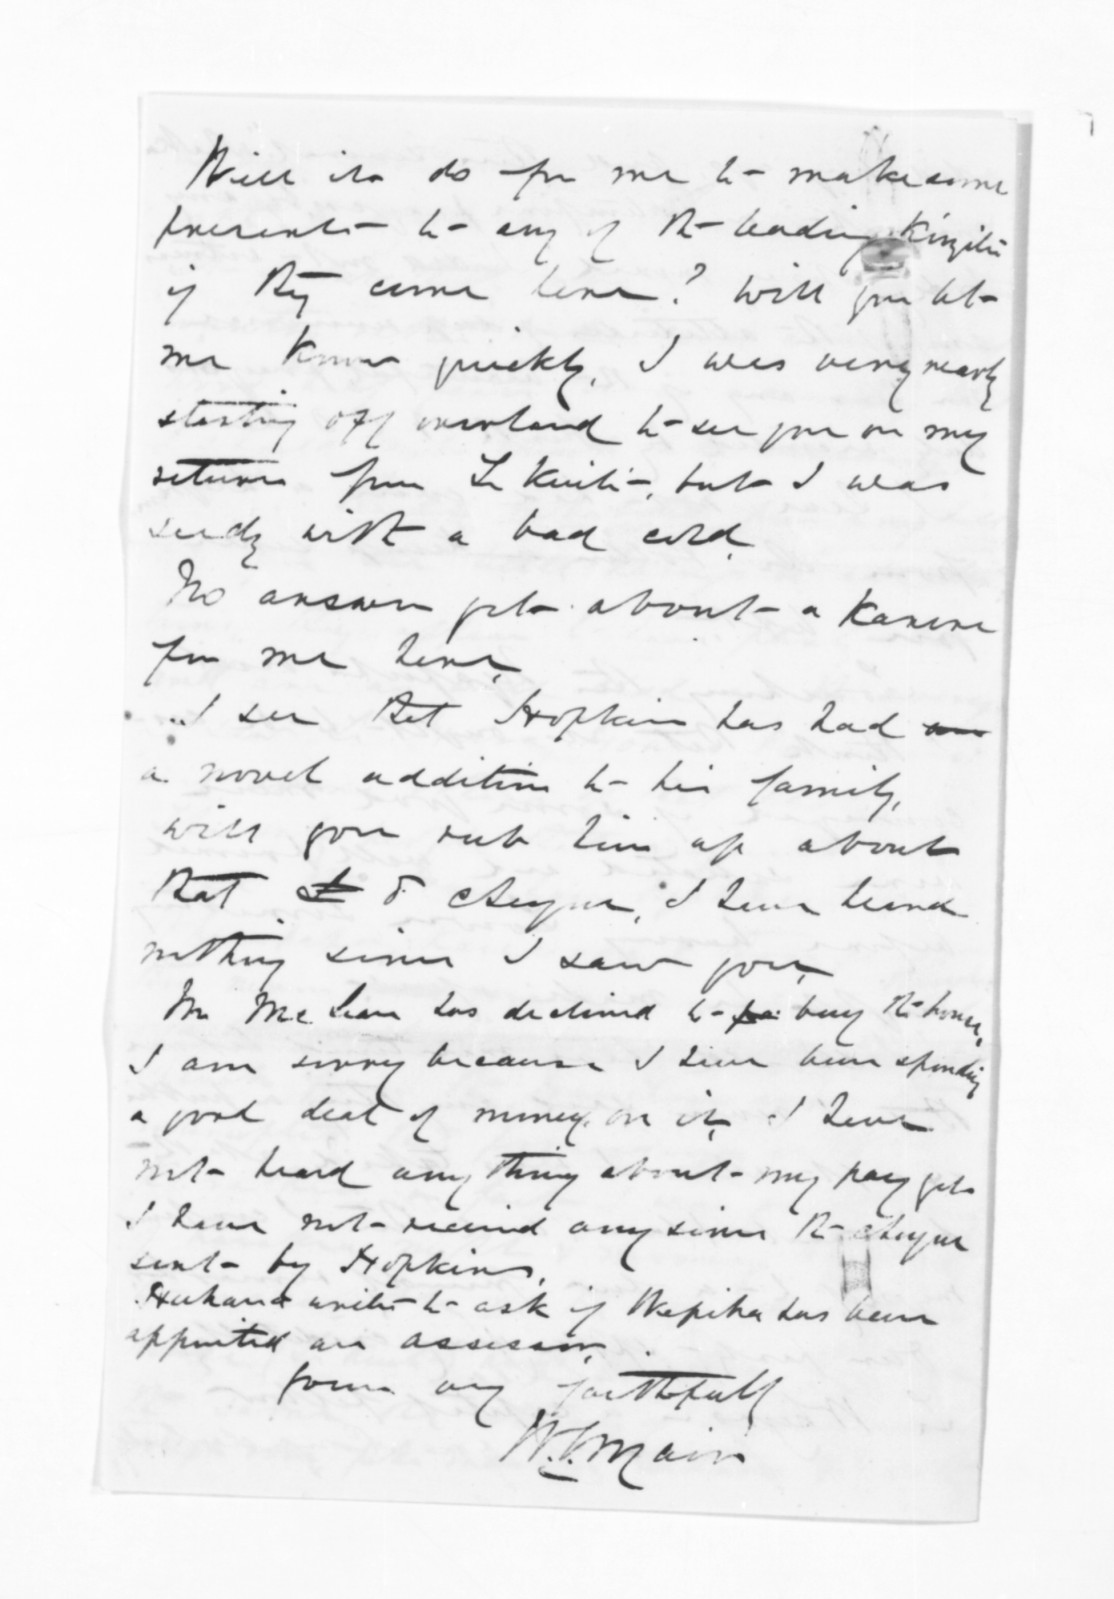 Will it do for me to make some
presents to any of the leading Kingites
if they come here? Will you let
me know quickly, I was very nearly
starting off overland to see you on my
return from Te Kuiti, but I was
seedy with a bad cold.
No answer yet about a Karere
for me here,
I see that Hopkins has had
a novel addition to his family,
will you rub him up about
that cheque, I have heard
nothing since I saw you,
Mr McLean has declined to buy the house,
I am sorry because I have been spending
a good deal of money on it, I have
not heard any thing about my pay yet
I have not received any since the cheque
sent by Hopkins,
writes to ask if has been
appointed an assessor,
Yours very faithfully
W.G. Mair